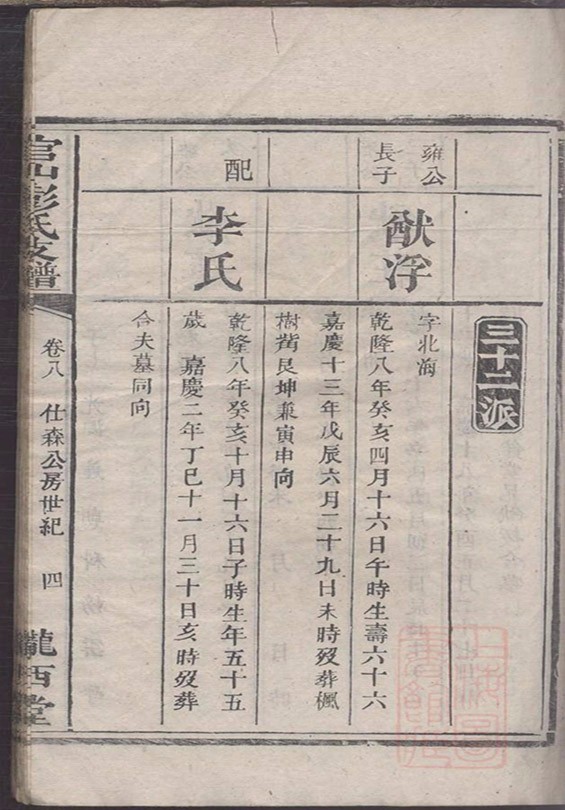 三十二派
雍公
長子
猷浮
字北海
乾隆八年癸亥四月十六日午時生壽六十六
嘉慶十三年戊辰六月二十九日未時歿葬楓
樹觜艮坤兼寅申向
配
李氏
乾隆八年癸亥十月十六日子時生年五十五
歲 嘉慶二年丁巳十一月三十日亥時歿葬
合夫墓同向
官山彭氏支譜
卷八 仕森公房世紀 四
隴西堂